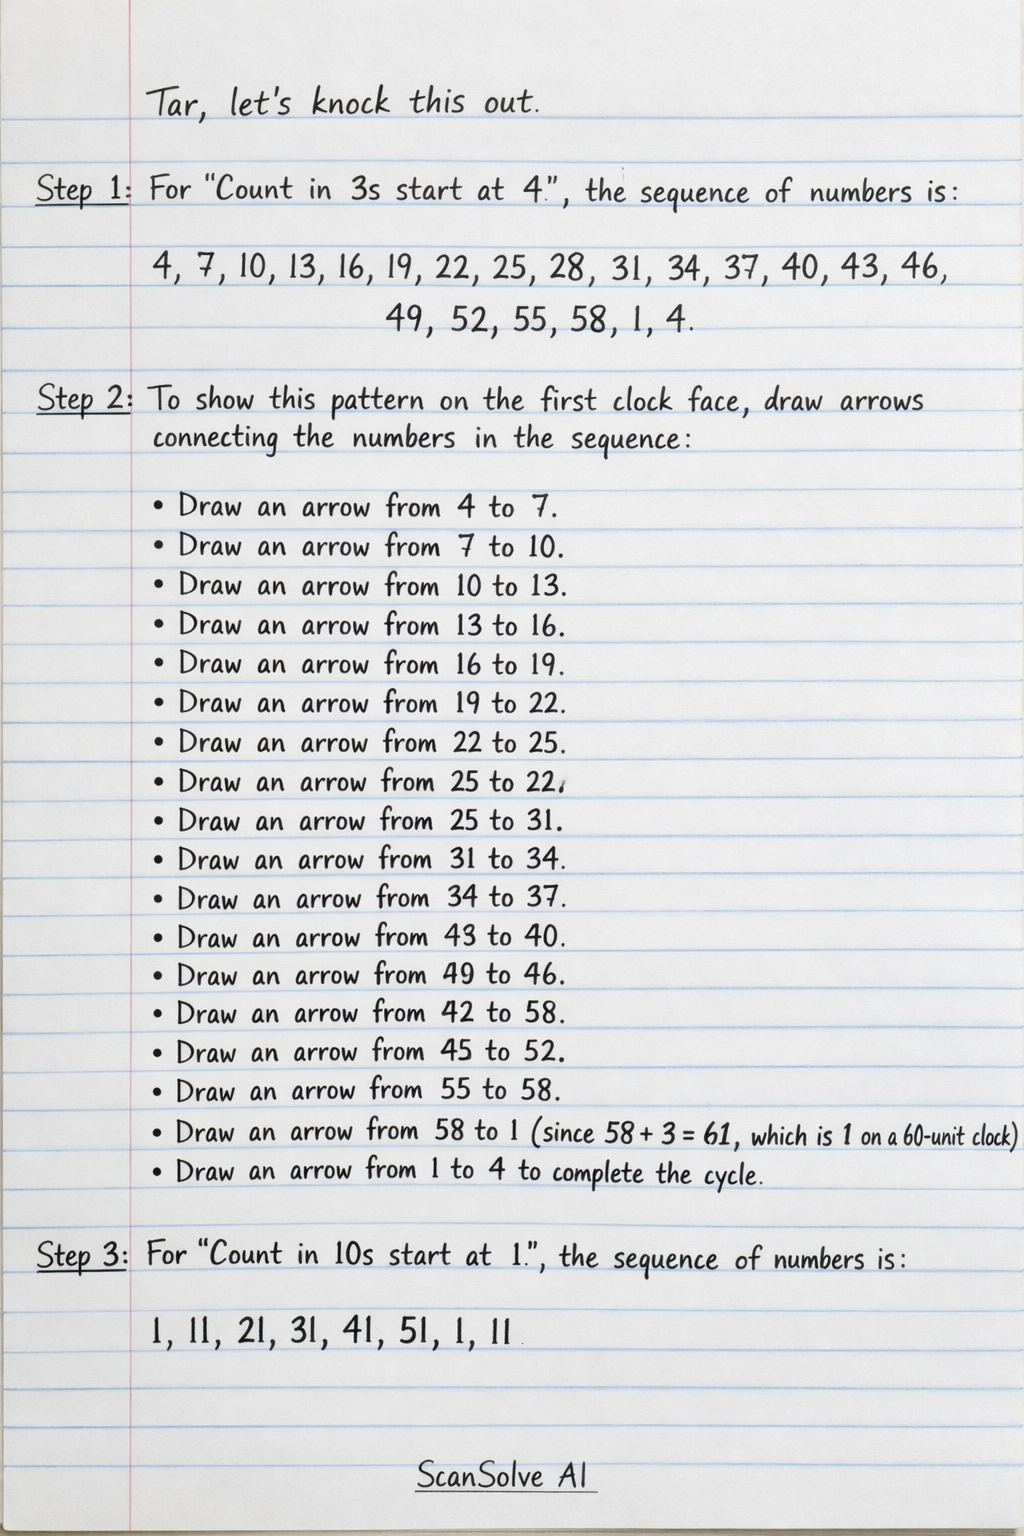 Tar, let's knock this out.
Step 1: For "Count in 3s start at 4.", the sequence of numbers is:
4, 7, 10, 13, 16, 19, 22, 25, 28, 31, 34, 37, 40, 43, 46,
49, 52, 55, 58, 1, 4.
Step 2: To show this pattern on the first clock face, draw arrows
connecting the numbers in the sequence:
• Draw an arrow from 4 to 7.
• Draw an arrow from 7 to 10.
• Draw an arrow from 10 to 13.
• Draw an arrow from 13 to 16.
• Draw an arrow from 16 to 19.
• Draw an arrow from 19 to 22.
• Draw an arrow from 22 to 25.
• Draw an arrow from 25 to 22.
• Draw an arrow from 25 to 31.
• Draw an arrow from 31 to 34.
• Draw an arrow from 34 to 37.
• Draw an arrow from 43 to 40.
• Draw an arrow from 49 to 46.
• Draw an arrow from 42 to 58.
• Draw an arrow from 45 to 52.
• Draw an arrow from 55 to 58.
• Draw an arrow from 58 to 1 (since 58 + 3 = 61, which is 1 on a 60-unit clock)
• Draw an arrow from 1 to 4 to complete the cycle.
Step 3: For "Count in 10s start at 1.", the sequence of numbers is:
1, 11, 21, 31, 41, 51, 1, 11
ScanSolve AI